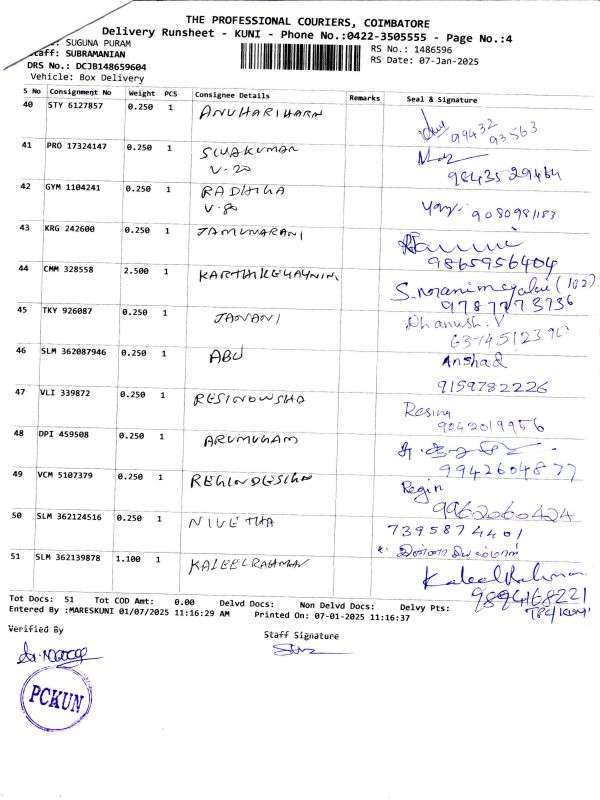 THE PROFESSIONAL COURIERS, COIMBATORE
Delivery Runsheet - KUNI - Phone No.:0422-3505555 - Page No.:4
: SUGUNA PURAM
RS No.: 1486596
Staff: SUBRAMANIAN
RS Date: 07-Jan-2025
DRS No.: DCJB148659604
Vehicle: Box Delivery
S No Consignment No Weight PCS Consignee Details Remarks Seal & Signature
40 STY 6127857 0.250 1 ANUHARIHARN 99432 93563
41 PRO 17324147 0.250 1 SIVAKUMAR
V-20 98435 29464
42 GYM 1104241 0.250 1 RADHIKA
V-80 9080981183
43 KRG 242600 0.250 1 JAMUNARANI
9865956404
44 CMM 328558 2.500 1 S.moranimegalai (102)
9787773736
45 TKY 926087 0.250 1 JANANI Dhanush.V
46 SLM 362087946 0.250 1 ABU Anshad
9159782226
47 VLI 339872 0.250 1 RESINOWSHD Resing
9042019956
48 DPI 459508 0.250 1 ARUMUGAM
9942604877
49 VCM 5107379 0.250 1 Regin
9962060424
50 SLM 362124516 0.250 1 NIVETHA 7395874401
51 SLM 362139878 1.100 1 KALEELRAHMAN Kaleel Rahman
9894168221
Tot Docs: 51 Tot COD Amt: 0.00 Delvd Docs: Non Delvd Docs: Delvy Pts:
Entered By :MARESKUNI 01/07/2025 11:16:29 AM Printed On: 07-01-2025 11:16:37
Verified By
Staff Signature
PCKUN